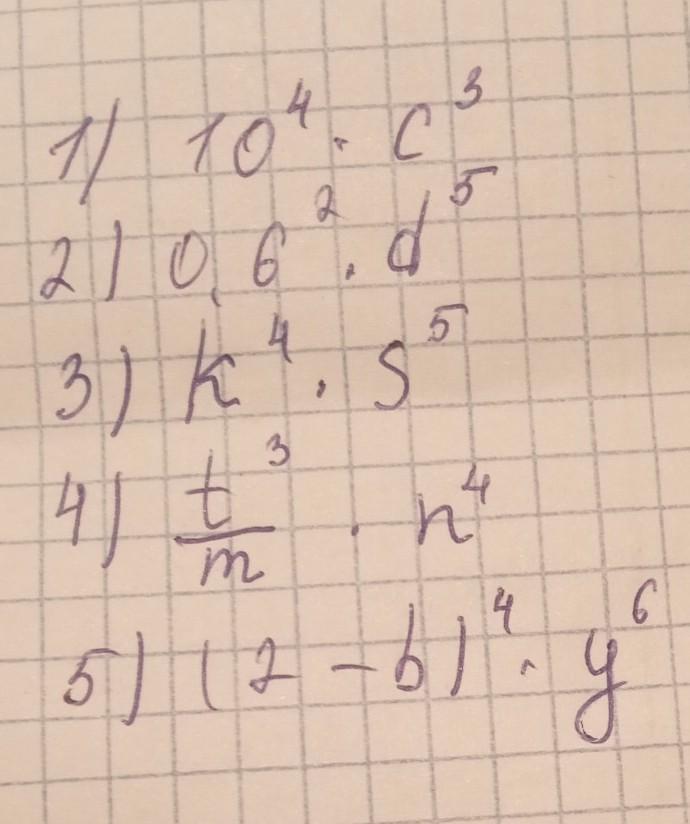 1) 10⁴ · c³
2) 0,6² · d⁵
3) k⁴ · s⁵
4) t³/m · n⁴
5) (2 - b)⁴ · y⁶